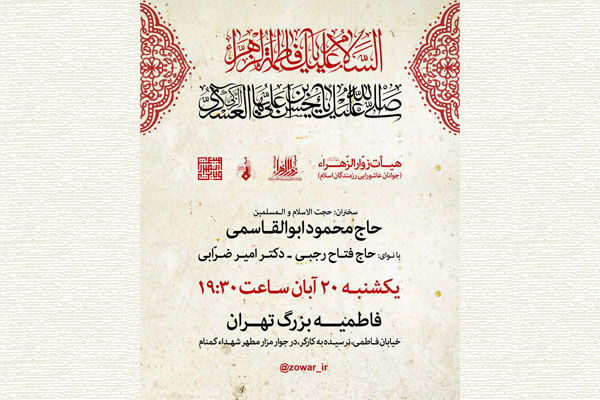 السلام علیک یا فاطمة الزهراء
صلی الله علیک یا حسن بن علی ایها العسکری
هیأت زوّار الزّهراء
(جوانان عاشورایی رزمندگان اسلام)
سخنران: حجت الاسلام و المسلمین
حاج محمود ابوالقاسمی
با نوای: حاج فتاح رجبی - دکتر امیر ضرّابی
یکشنبه ۲۰ آبان ساعت ۱۹:۳۰
فاطمیه بزرگ تهران
خیابان فاطمی، نرسیده به کارگر، در جوار مزار مطهر شهداء گمنام
@zowar_ir